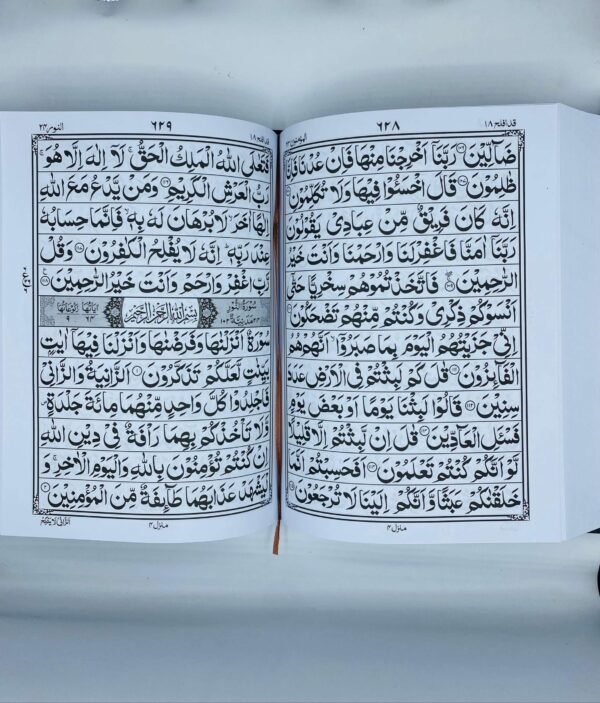 قد افلح ١٨ ٦٢٨ المؤمنون ٢٣
ضَآلِّيْنَ ۝١٠٦ رَبَّنَآ اَخْرِجْنَا مِنْهَا فَاِنْ عُدْنَا فَاِنَّا
ظٰلِمُوْنَ ۝١٠٧ قَالَ اخْسَـُٔوْا فِيْهَا وَلَا تُكَلِّمُوْنِ ۝١٠٨
اِنَّهٗ كَانَ فَرِيْقٌ مِّنْ عِبَادِيْ يَقُوْلُوْنَ
رَبَّنَآ اٰمَنَّا فَاغْفِرْ لَنَا وَارْحَمْنَا وَاَنْتَ خَيْرُ
الرّٰحِمِيْنَ ۝١٠٩ فَاتَّخَذْتُمُوْهُمْ سِخْرِيًّا حَتّٰٓى
اَنْسَوْكُمْ ذِكْرِيْ وَكُنْتُمْ مِّنْهُمْ تَضْحَكُوْنَ ۝١١٠
اِنِّيْ جَزَيْتُهُمُ الْيَوْمَ بِمَا صَبَرُوْٓا ۙ اَنَّهُمْ هُمُ
الْفَآئِزُوْنَ ۝١١١ قٰلَ كَمْ لَبِثْتُمْ فِي الْاَرْضِ عَدَدَ
سِنِيْنَ ۝١١٢ قَالُوْا لَبِثْنَا يَوْمًا اَوْ بَعْضَ يَوْمٍ
فَسْـَٔلِ الْعَآدِّيْنَ ۝١١٣ قٰلَ اِنْ لَّبِثْتُمْ اِلَّا قَلِيْلًا
لَّوْ اَنَّكُمْ كُنْتُمْ تَعْلَمُوْنَ ۝١١٤ اَفَحَسِبْتُمْ اَنَّمَا
خَلَقْنٰكُمْ عَبَثًا وَّاَنَّكُمْ اِلَيْنَا لَا تُرْجَعُوْنَ ۝١١٥
منزل ٤
قد افلح ١٨ ٦٢٩ النور ٢٤
فَتَعٰلَى اللّٰهُ الْمَلِكُ الْحَقُّ ۚ لَآ اِلٰهَ اِلَّا هُوَ ۚ
رَبُّ الْعَرْشِ الْكَرِيْمِ ۝١١٦ وَمَنْ يَّدْعُ مَعَ اللّٰهِ
اِلٰهًا اٰخَرَ ۙ لَا بُرْهَانَ لَهٗ بِهٖ ۙ فَاِنَّمَا حِسَابُهٗ
عِنْدَ رَبِّهٖ ۭ اِنَّهٗ لَا يُفْلِحُ الْكٰفِرُوْنَ ۝١١٧ وَقُلْ
رَّبِّ اغْفِرْ وَارْحَمْ وَاَنْتَ خَيْرُ الرّٰحِمِيْنَ ۝١١٨
سورة النور بِسْمِ اللّٰهِ الرَّحْمٰنِ الرَّحِيْمِ اٰياتها ٦٤ ركوعاتها ٩
سُوْرَةٌ اَنْزَلْنٰهَا وَفَرَضْنٰهَا وَاَنْزَلْنَا فِيْهَآ اٰيٰتٍۢ
بَيِّنٰتٍ لَّعَلَّكُمْ تَذَكَّرُوْنَ ۝١ اَلزَّانِيَةُ وَالزَّانِيْ
فَاجْلِدُوْا كُلَّ وَاحِدٍ مِّنْهُمَا مِائَةَ جَلْدَةٍ ۠
وَّلَا تَاْخُذْكُمْ بِهِمَا رَاْفَةٌ فِيْ دِيْنِ اللّٰهِ
اِنْ كُنْتُمْ تُؤْمِنُوْنَ بِاللّٰهِ وَالْيَوْمِ الْاٰخِرِ ۚ وَ
لْيَشْهَدْ عَذَابَهُمَا طَآئِفَةٌ مِّنَ الْمُؤْمِنِيْنَ ۝٢
منزل ٤